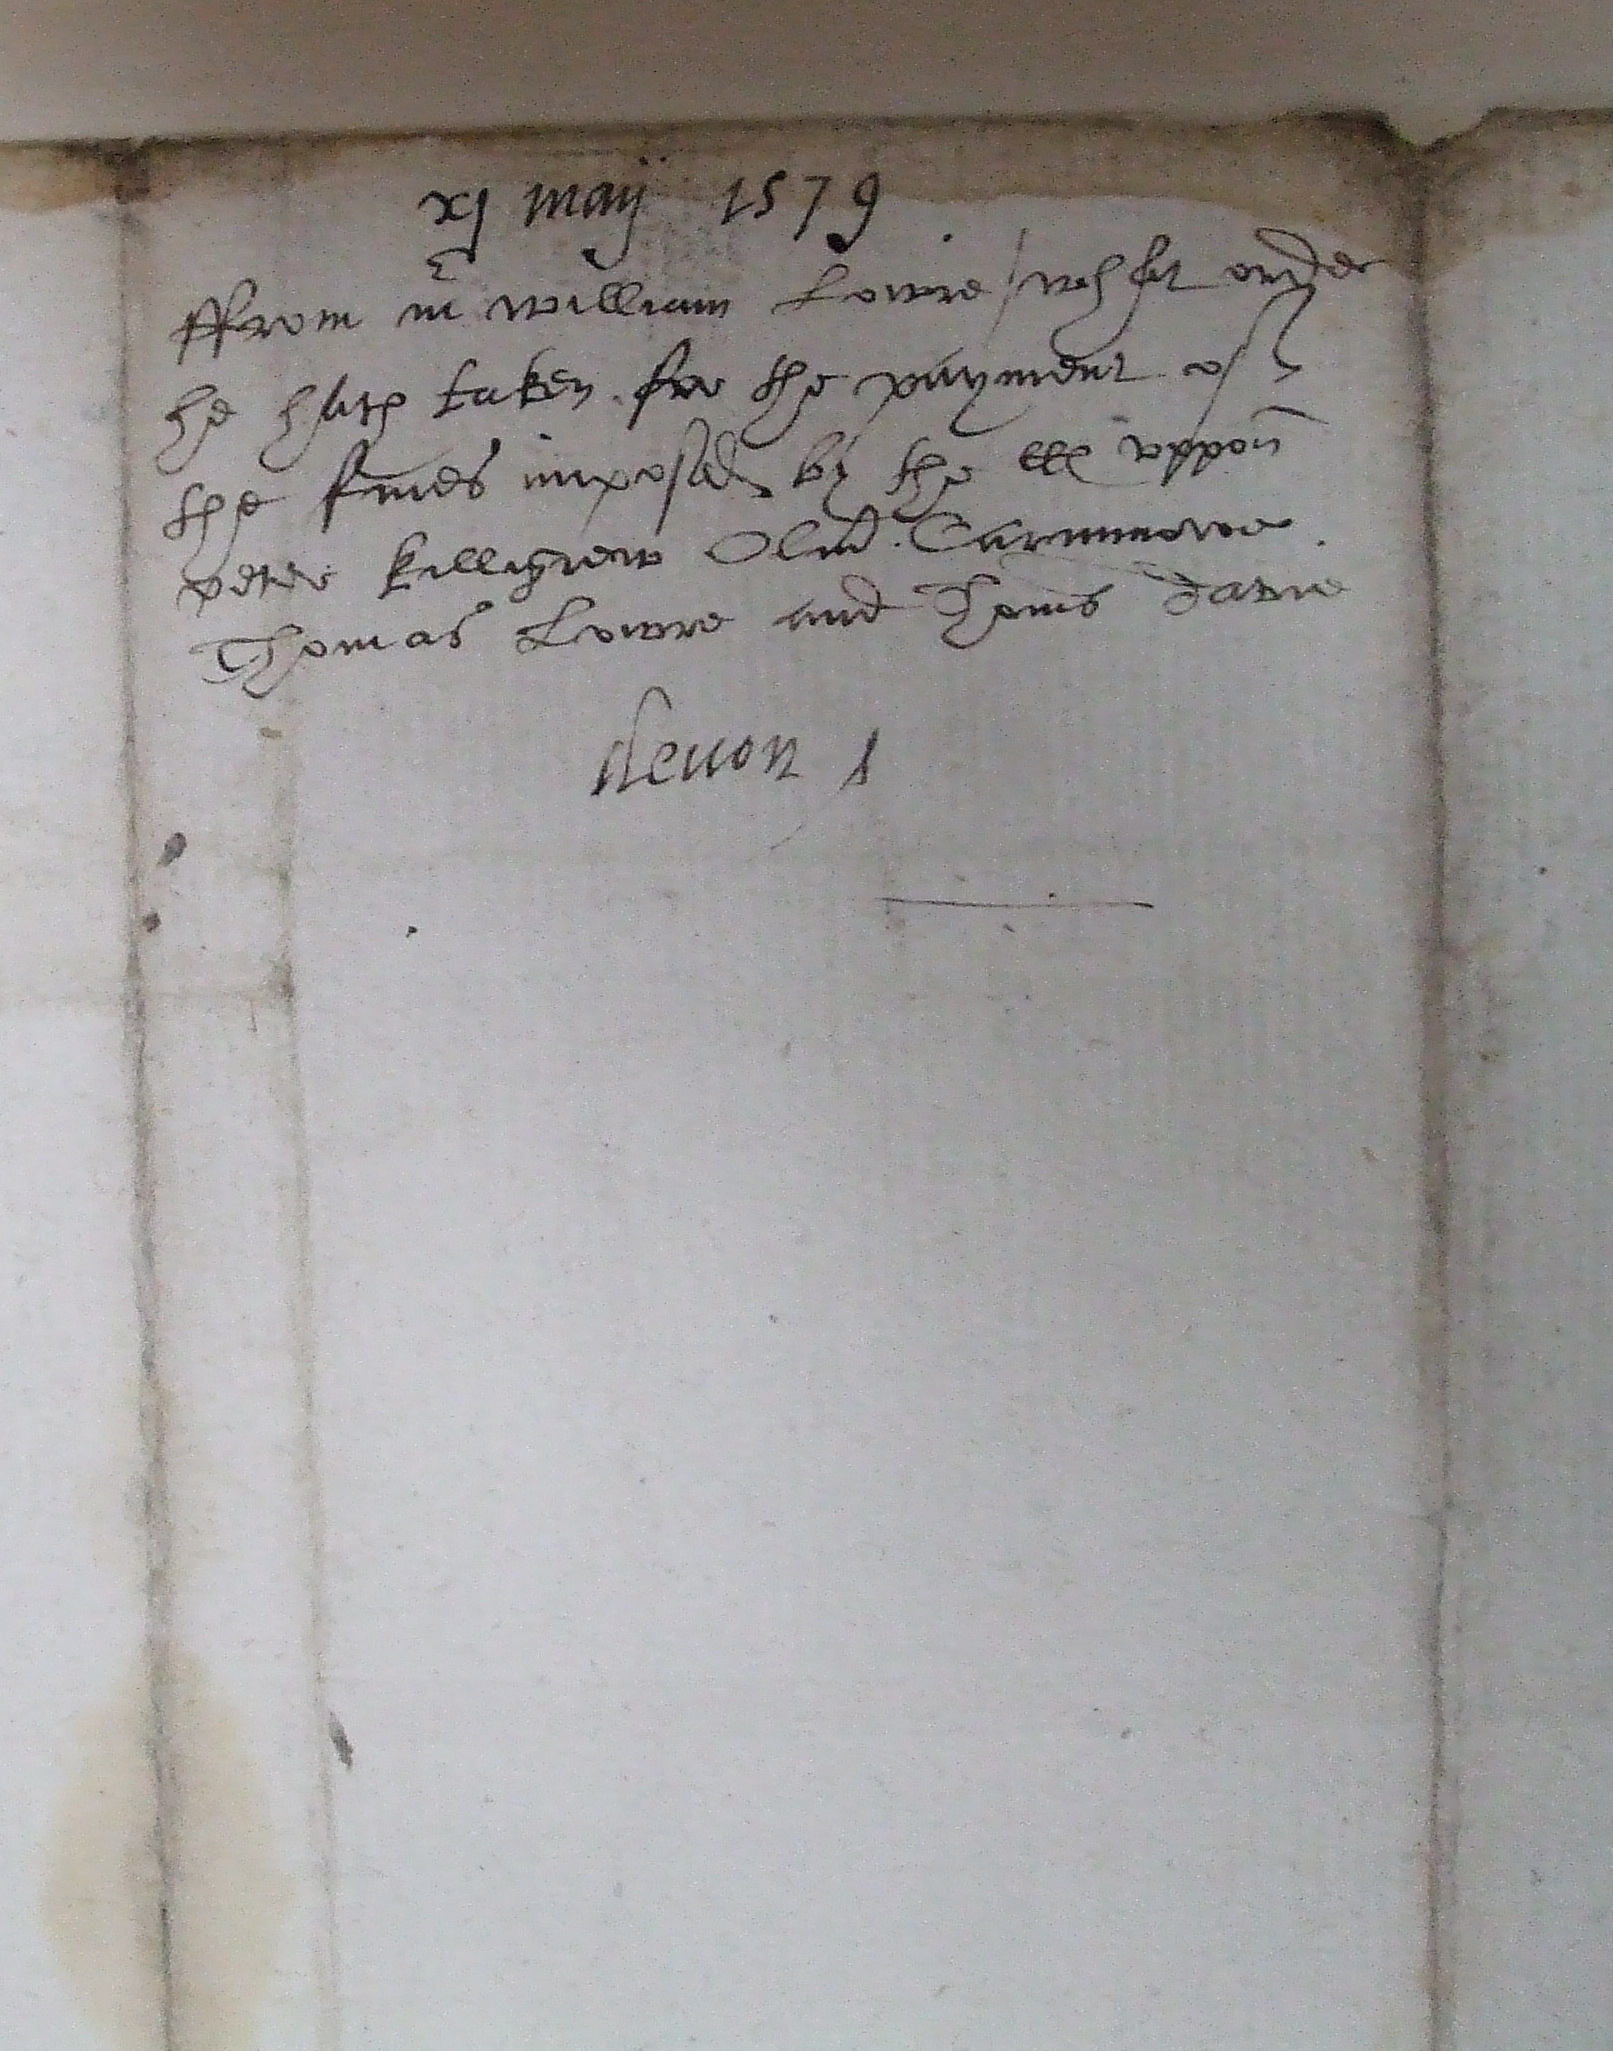 xj maij 1579
ffrom mr William Lowre / what order
he hath taken for the payment of
the fines imposed by the lls vppon
peter killigrew Oliu᷑. Carminowe.
Thomas Lowre and Thoms
devon